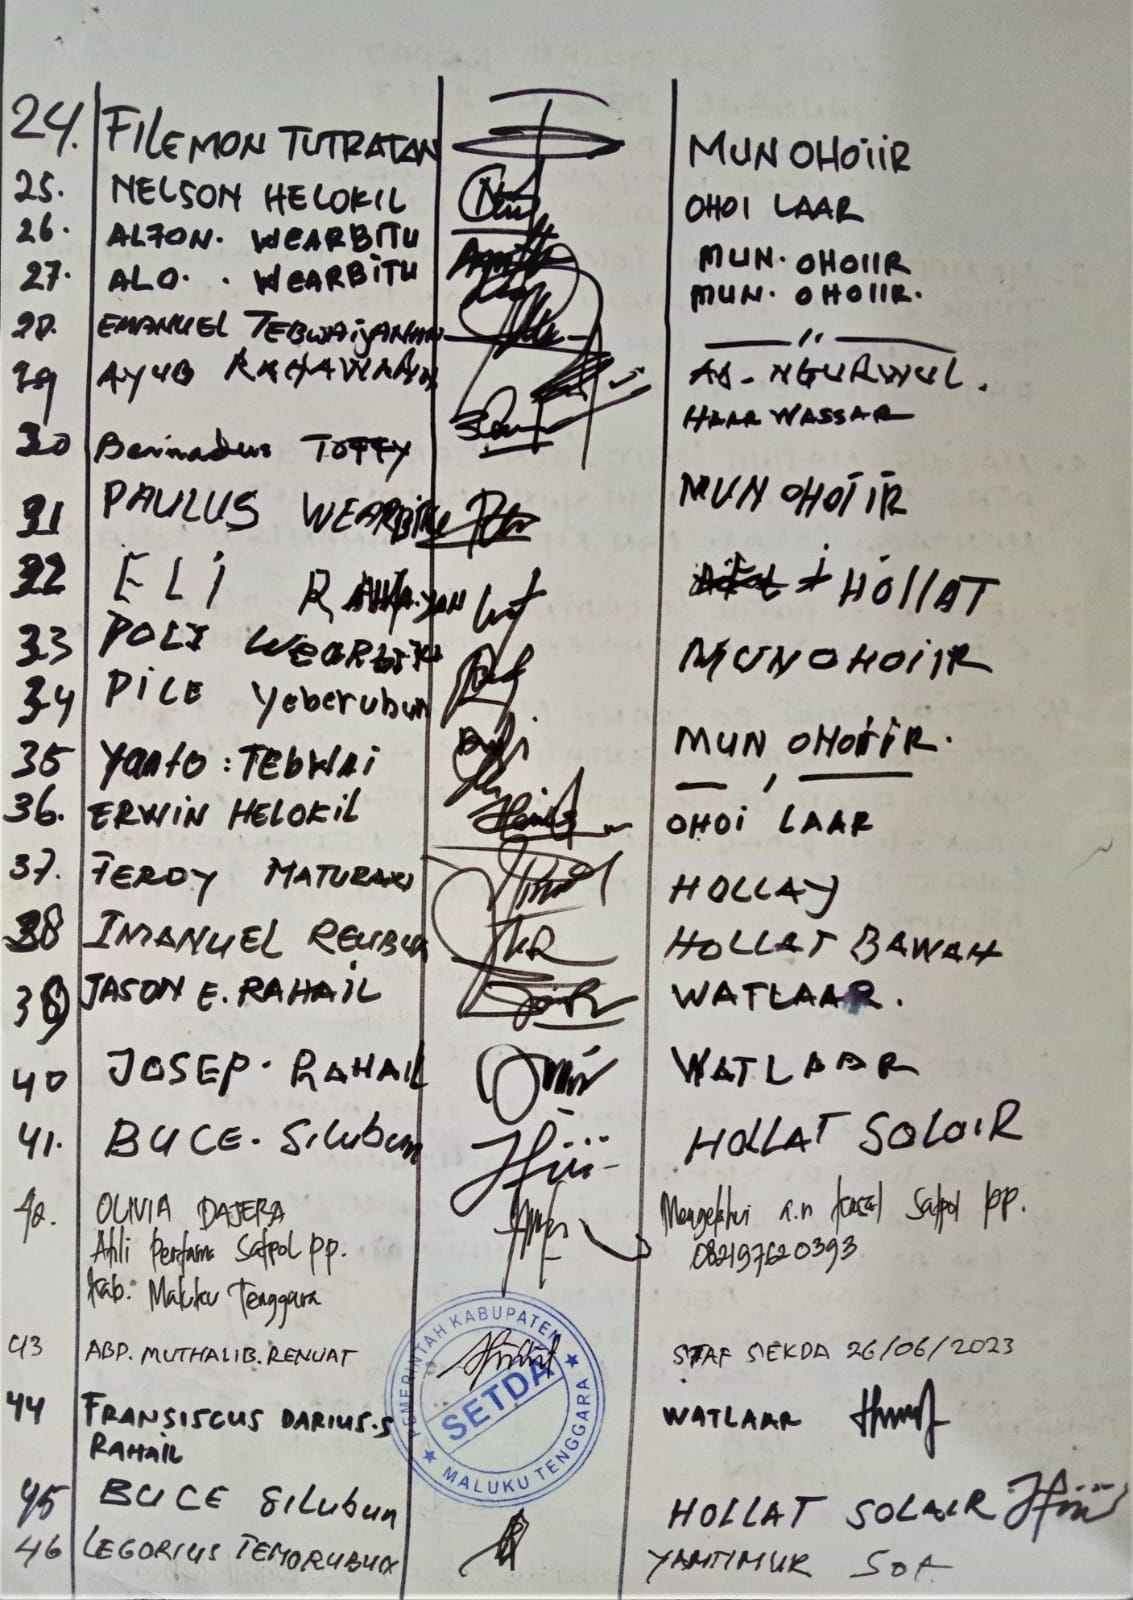 24. FILEMON TUTRATAN MUN OHOIIR
25. NELSON HELOKIL OHOI LAAR
26. ALFON. WEARBITU MUN. OHOIIR
27. ALO. . WEARBITU MUN. OHOIIR.
28. EMANUEL TEBWAIYANAN — " —
29 AYUB RAHAWARIN AD-NGURWUL.
30 Bernadus TOFFY HAAR WASSAR
31 PAULUS WEARBITU MUN OHOIIR
32 ELI RAHAYAN HOLLAT
33 POLI WEARBITU MUN OHOIIR
34 PILE Yeberubun
35 Yanto : TEBWAI MUN OHOIIR.
36. ERWIN HELOKIL OHOI LAAR
37. FERDY MATURAN HOLLAY
38 IMANUEL REUBUN HOLLAT BAWAH
39 JASON E. RAHAIL WATLAAR.
40 JOSEP. RAHAIL WATLAAR
41. BUCE. Silubun HOLLAT SOLAIR
42. OLIVIA DAJERA Mengetahui a.n Kasat Satpol pp.
Ahli Pertama Satpol pp. 082197620393
Kab. Maluku Tenggara
PEMERINTAH KABUPATEN
43 ABD. MUTHALIB. RENUAT STAF SEKDA 26/06/2023
SETDA
44 FRANSISCUS DARIUS.S WATLAAR
RAHAIL
MALUKU TENGGARA
45 BUCE Silubun HOLLAT SOLAIR
46 LEGORIUS TEMORUBUN YAMTIMUR